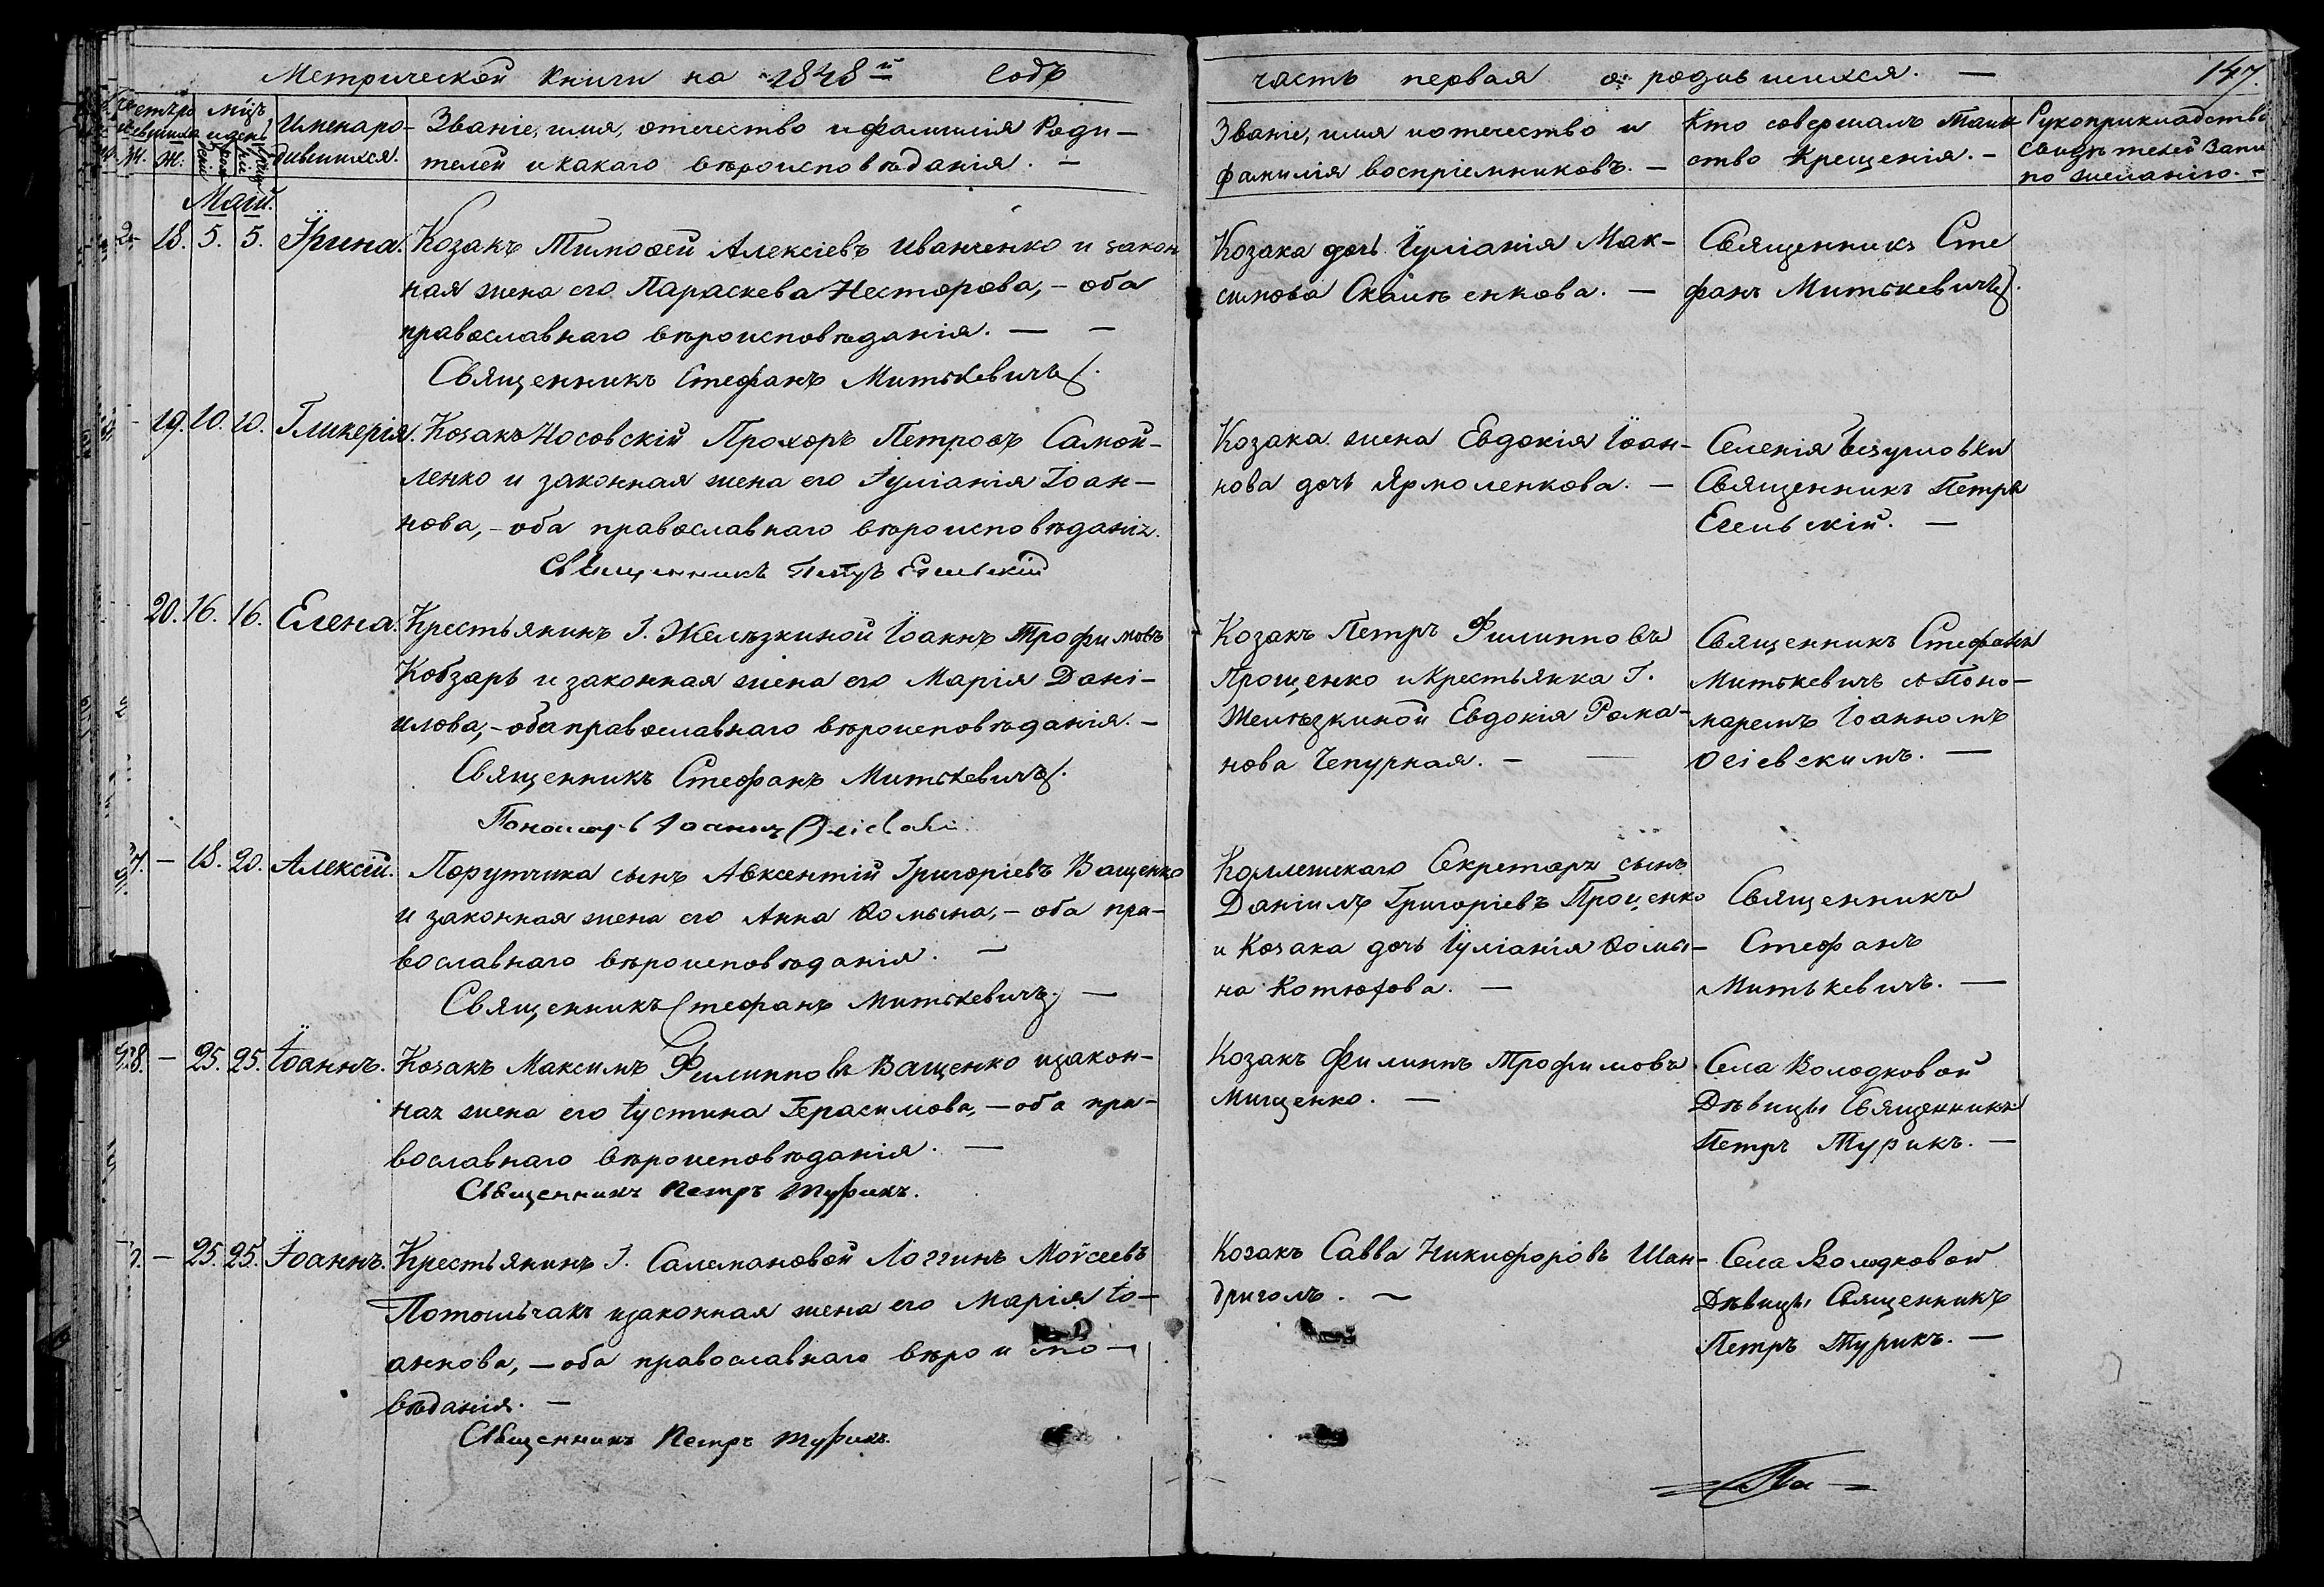 Метрической книги на 1848й годъ
часть первая о родившихся. — 147.
Имена ро-
дившихся.
Званіе, имя, отечество и фамилія Роди-
телей и какаго вѣроисповѣданія. —
Званіе, имя и отечество и
фамилія воспріемниковъ. —
Кто совершалъ Таин
ство Крещенія. —
Рукоприкладство
свидѣтелей Запи
по желанію. —
Май.
18. 5. 5. Ирина.
Козакъ Тимофей Алексіевъ Иванченко и закон
ная жена его Параскева Несторова, — оба
православнаго вѣроисповѣданія. — —
Священникъ Стефанъ Митькевичъ.
Козака дочь Іуліанія Мак-
симова —
Священникъ Сте
фанъ Митькевичъ.
- 19. 10. 10. Гликерія.
Козакъ Носовскій Прохоръ Петровъ Самой-
ленко и законная жена его Іуліанія Іоан-
нова, — оба православнаго вѣроисповѣданія.
Священникъ Петръ
Козака жена Евдокія Іоан-
нова дочь Ярмоленкова. —
Селенія
Священникъ Петръ
20. 16. 16. Елена.
Крестьянинъ Г. Желѣзкиной Іоаннъ Трофимовъ
Кобзарь и законная жена его Марія Дані-
илова, — оба православнаго вѣроисповѣданія. —
Священникъ Стефанъ Митькевичъ.
Пономарь Іоаннъ
Козакъ Петръ Филипповъ
Прощенко и крестьянка Г.
Желѣзкиной Евдокія Рома-
нова Чепурная. — —
Священникъ Стефанъ
Митькевичъ с Поно-
маремъ Іоанномъ
—
7. — 18. 20. Алексій.
Порутчика сынъ Авксентій Григоріевъ Ващенко
и законная жена его Анна Ѳомина, — оба пра-
вославнаго вѣроисповѣданія. —
Священникъ Стефанъ Митькевичъ. —
Коллежскаго Секретаря сынъ
Даніилъ Григоріевъ Проценко
и Козака дочь Іуліанія Ѳоми-
на —
Священникъ
Стефанъ
Митькевичъ. —
8. — 25. 25. Іоаннъ.
Козакъ Максимъ Филипповъ Ващенко и закон-
ная жена его Іустина Герасимова, — оба пра-
вославнаго вѣроисповѣданія. —
Священникъ Петръ Турикъ.
Козакъ Филиппъ Трофимовъ
Мищенко. —
Села Володковой
Дѣвицы Священникъ
Петръ Турикъ. —
— 25. 25. Іоаннъ.
Крестьянинъ Г. Салемановой Логгинъ Моѵсеевъ
и законная жена его Марія Іо-
аннова, — оба православнаго вѣроиспо-
вѣданія. —
Священникъ Петръ Турикъ.
Козакъ Савва Никифоровъ Шан-
дриголъ. —
Села Володковой
Дѣвицы Священникъ
Петръ Турикъ. —